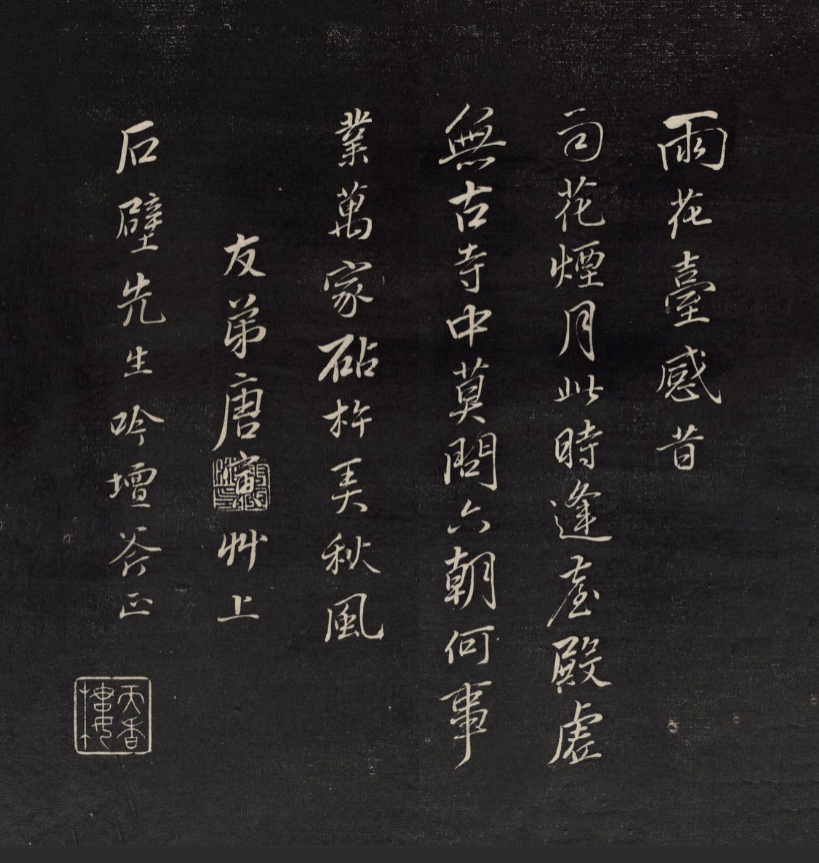 雨花臺感昔
司花煙月此時逢臺殿虛
無古寺中莫問六朝何事
業萬家砧杵弄秋風
友弟唐寅艸上
石壁先生吟壇斧正
天香樓